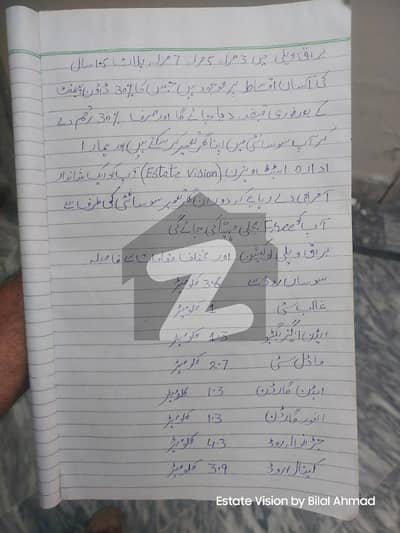 براق ویلی میں 3 مرلہ 5 مرلہ 7 مرلہ پلاٹ 1.5 سال
کی آسان اقساط پر موجود ہیں جس کا 30% ڈاؤن پیمنٹ
کے بعد فوری قبضہ دیا جائے گا اور صرف 30% رقم دے
کر آپ سوسائٹی میں اپنا گھر تعمیر کر سکتے ہیں اور ہمارا
ادارہ اسٹیٹ ویژن (Estate Vision) آپ کو ایک شاندار
آفر دے رہا ہے کہ دوران تعمیر سوسائٹی کی طرف سے
آپ کو Free بجلی مہیا کی جائے گی
براق ویلی لوکیشن اور مختلف مقامات سے فاصلہ
سوساں روڈ 3.6 کلومیٹر
غالب سٹی 1 کلومیٹر
ایڈن ایگزیکٹو کلومیٹر
ماڈل سٹی 2.7 کلومیٹر
ایڈن گارڈن 1.3 کلومیٹر
انور گارڈن 1.3 کلومیٹر
جڑانوالہ روڈ 4.3 کلومیٹر
کینال روڈ 3.9 کلومیٹر
Estate Vision by Bilal Ahmad